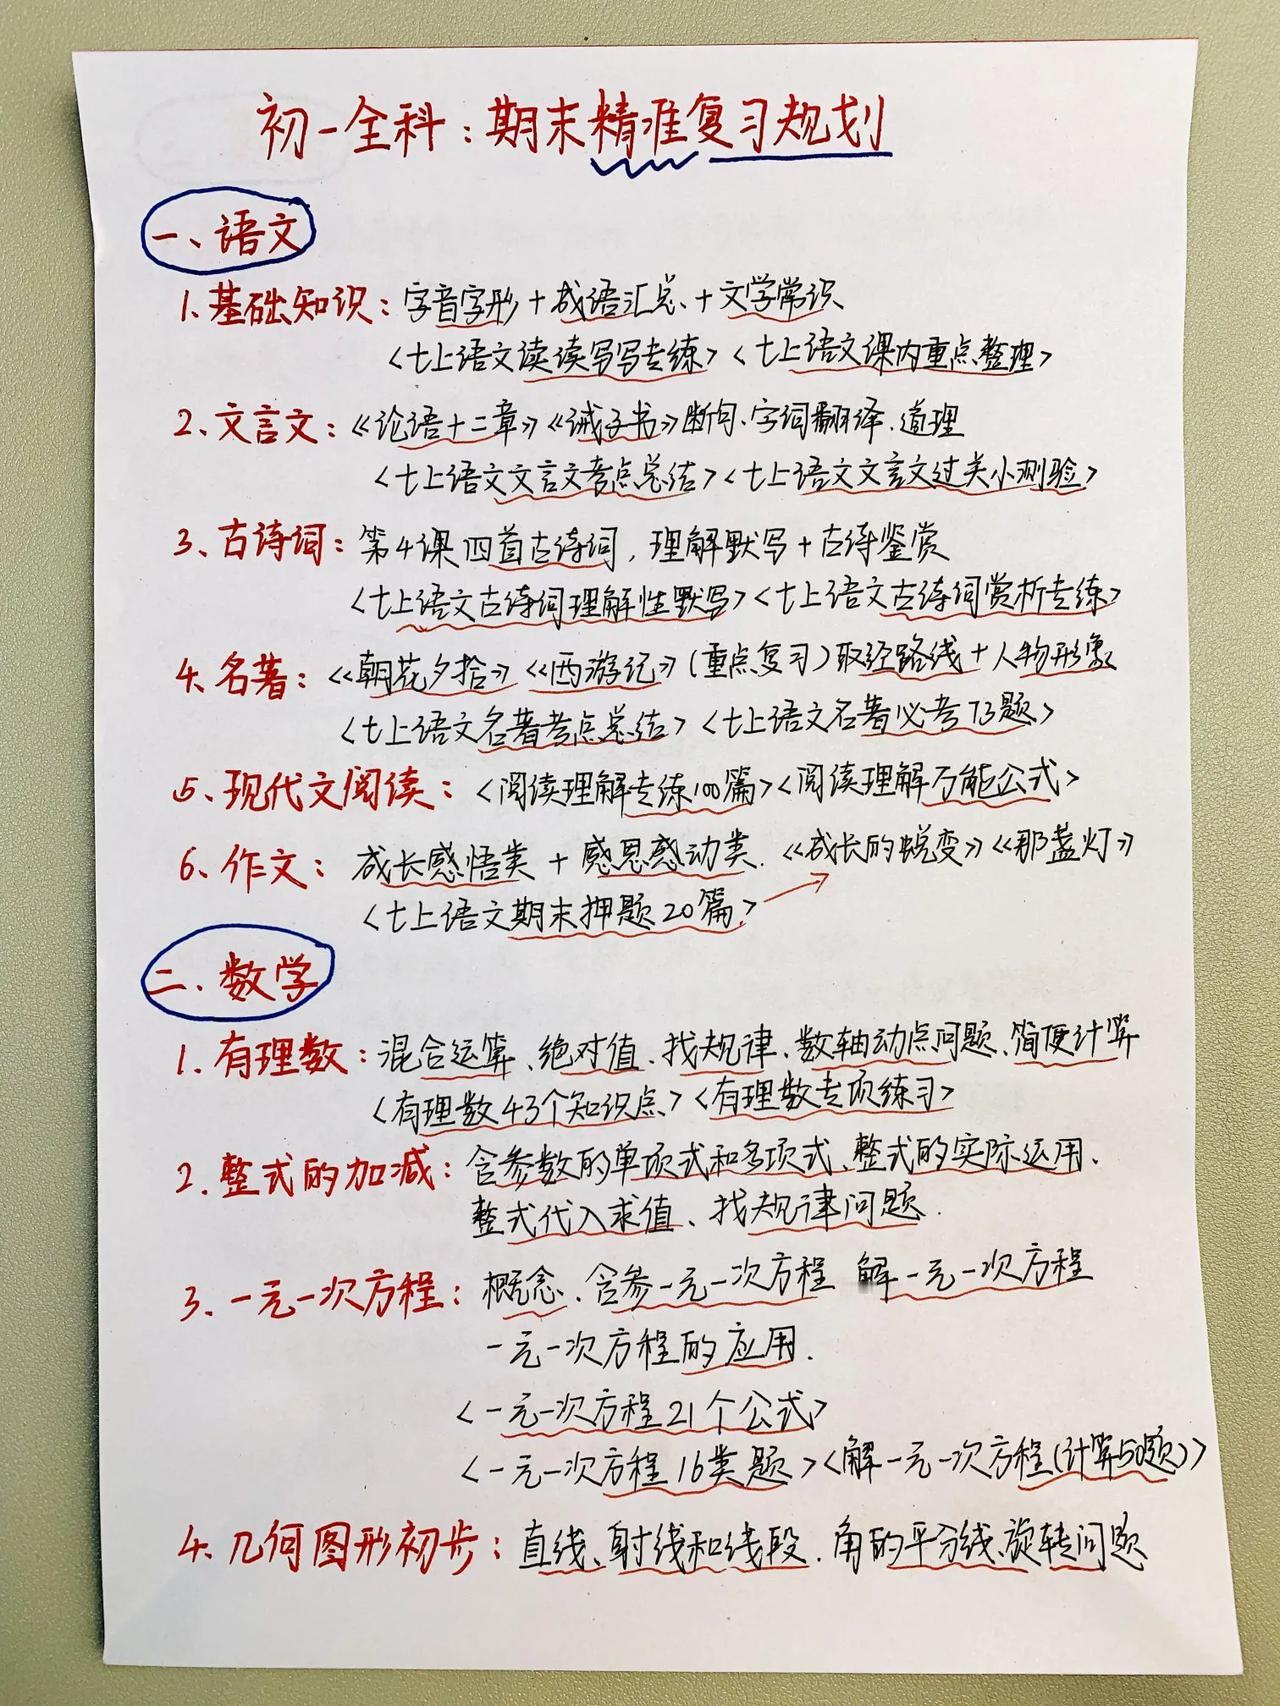 初一全科：期末精准复习规划
一、语文
1.基础知识：字音字形+成语汇总+文学常识
<七上语文读读写写专练><七上语文课内重点整理>
2、文言文：《论语十二章》《诫子书》断句、字词翻译、道理
<七上语文文言文考点总结><七上语文文言文过关小测验>
3、古诗词：第4课四首古诗词，理解默写+古诗鉴赏
<七上语文古诗词理解性默写><七上语文古诗词赏析专练>
4.名著：《朝花夕拾》《西游记》(重点复习)取经路线+人物形象
<七上语文名著考点总结><七上语文名著必考73题>
5、现代文阅读：<阅读理解专练100篇><阅读理解万能公式>
6、作文：成长感悟类+感恩感动类.《成长的蜕变》《那盏灯》
<七上语文期末押题20篇>
二.数学
1.有理数：混合运算、绝对值、找规律、数轴动点问题、简便计算
<有理数43个知识点><有理数专项练习>
2.整式的加减：含参数的单项式和多项式、整式的实际运用、
整式代入求值、找规律问题.
3、一元一次方程：概念、含参一元一次方程 解一元一次方程
一元一次方程的应用.
<一元一次方程21个公式>
<一元一次方程16类题><解一元一次方程(计算50题)>
4.几何图形初步：直线、射线和线段、角的平分线、旋转问题